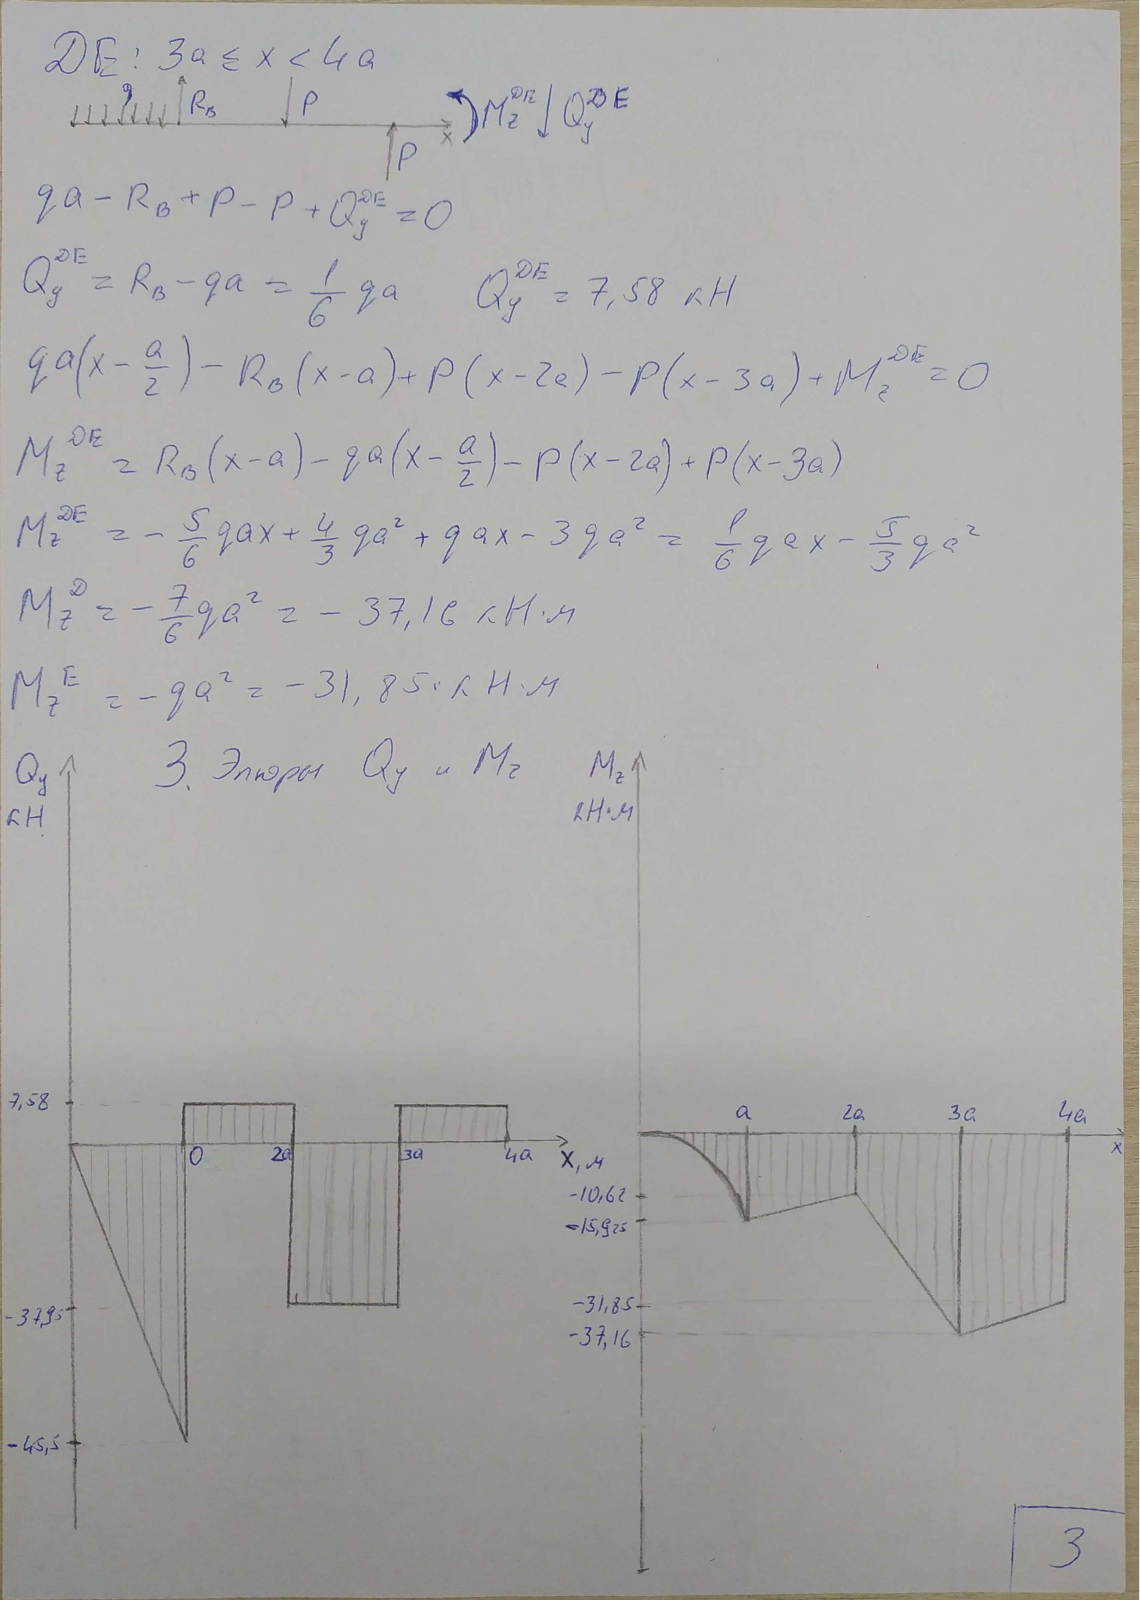 DE: 3a ≤ x < 4a
q R_B P M_z^DE Q_y^DE
x
P
qa - R_B + P - P + Q_y^DE = 0
Q_y^DE = R_B - qa = 1/6 qa Q_y^DE = 7,58 кН
qa(x - a/2) - R_B(x-a) + P(x-2a) - P(x-3a) + M_z^DE = 0
M_z^DE = R_B(x-a) - qa(x - a/2) - P(x-2a) + P(x-3a)
M_z^DE = - 5/6 qax + 4/3 qa² + qax - 3qa² = 1/6 qax - 5/3 qa²
M_z^D = - 7/6 qa² = - 37,16 кН·м
M_z^E = - qa² = - 31,85·кН·м
Q_y 3. Эпюры Q_y и M_z M_z
кН кН·м
7,58
0 2a 3a 4a x, м
-37,95
-45,5
a 2a 3a 4a
x
-10,62
-15,925
-31,85
-37,16
3